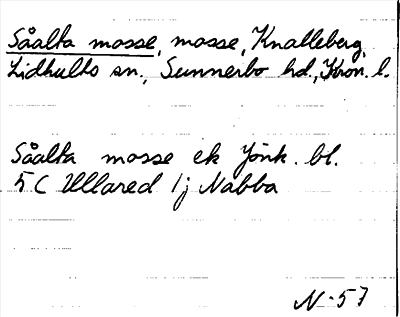 Såalta mosse, mosse, Knalleberg,
Lidhults sn., Sunnerbo hd., Kron. l.
Såalta mosse ek Jönk. bl.
5 C Ullared 1j Nabba
N-57